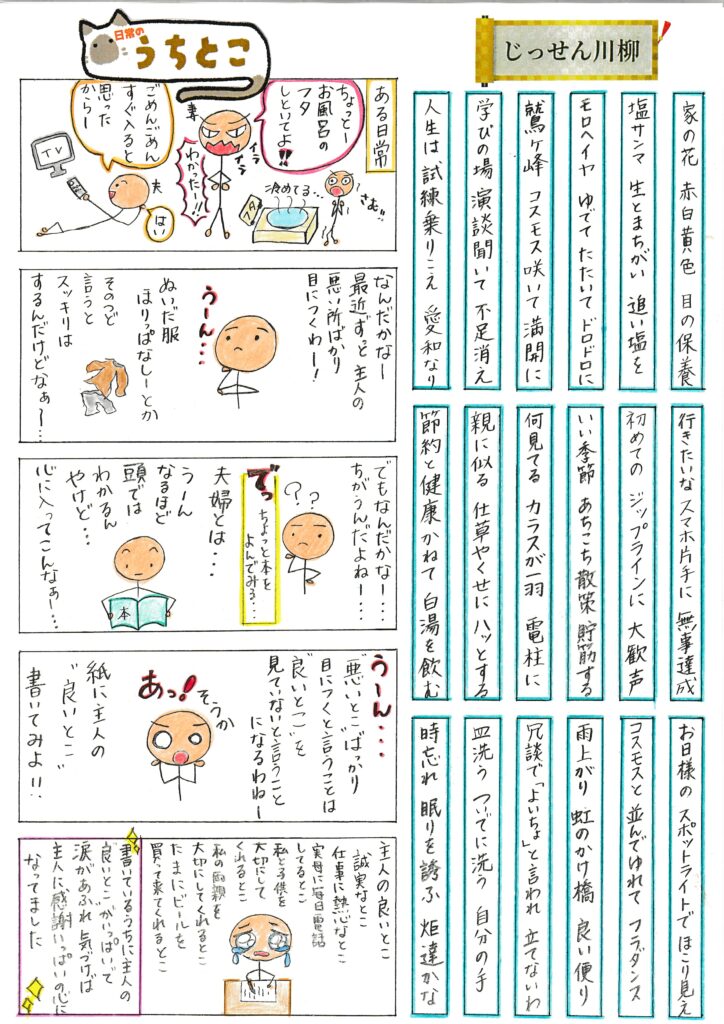 じっせん川柳
家の花 赤白黄色 目の保養
塩サンマ 生とまちがい 追い塩を
モロヘイヤ ゆでて たたいて ドロドロに
鷲ヶ峰 コスモス咲いて 満開に
学びの場 演談聞いて 不足消え
人生は 試練乗りこえ 愛和なり
行きたいな スマホ片手に 無事達成
初めての ジップラインに 大歓声
いい季節 あちこち散策 貯筋する
何見てる カラスが一羽 電柱に
親に似る 仕草やくせに ハッとする
節約と 健康かねて 白湯を飲む
お日様の スポットライトで ほこり見え
コスモスと 並んでゆれて フラダンス
雨上がり 虹のかけ橋 良い便り
冗談で 「よいちょ」と言われ 立てないわ
皿洗う ついでに洗う 自分の手
時忘れ 眠りを誘ふ 炬達かな
日常の
うちとこ
ある日常
ちょっとー
お風呂の
フタ
しといてよ!!
妻
イライラ
わかったー!!
さむ!!
冷めてる…
フタ
ごめんごめん
すぐ入ると
思った
からー
夫
はい
TV
なんだかなー
最近ずっと主人の
悪い所ばかり
目につくわー!
うーん…
ぬいだ服
ほりっぱなしーとか
そのつど
言うと
スッキリは
するんだけどなぁ〜…
でもなんだかなー…
ちがうんだよねー…
??
でっ
ちょっと本を
よんでみる…
夫婦とは…
うーん
なるほど
頭では
わかるん
やけど…
心に入ってこんなぁー…
本
うーん…
"悪いとこ"ばっかり
目につくと言うことは
"良いとこ"を
見ていないと言うこと
になるわねー
そうか
あっ!
紙に主人の
"良いとこ"
書いてみよ!!
主人の良いとこ
誠実なとこ
仕事に熱心なとこ
実母に毎日電話
してるとこ
私と子供を
大切にして
くれるとこ
私の両親を
大切にしてくれるとこ
たまにビールを
買って来てくれるとこ
書いているうちに主人の
良いとこがいっぱいで
涙があふれ気づけば
主人に感謝いっぱいの心に
なってました